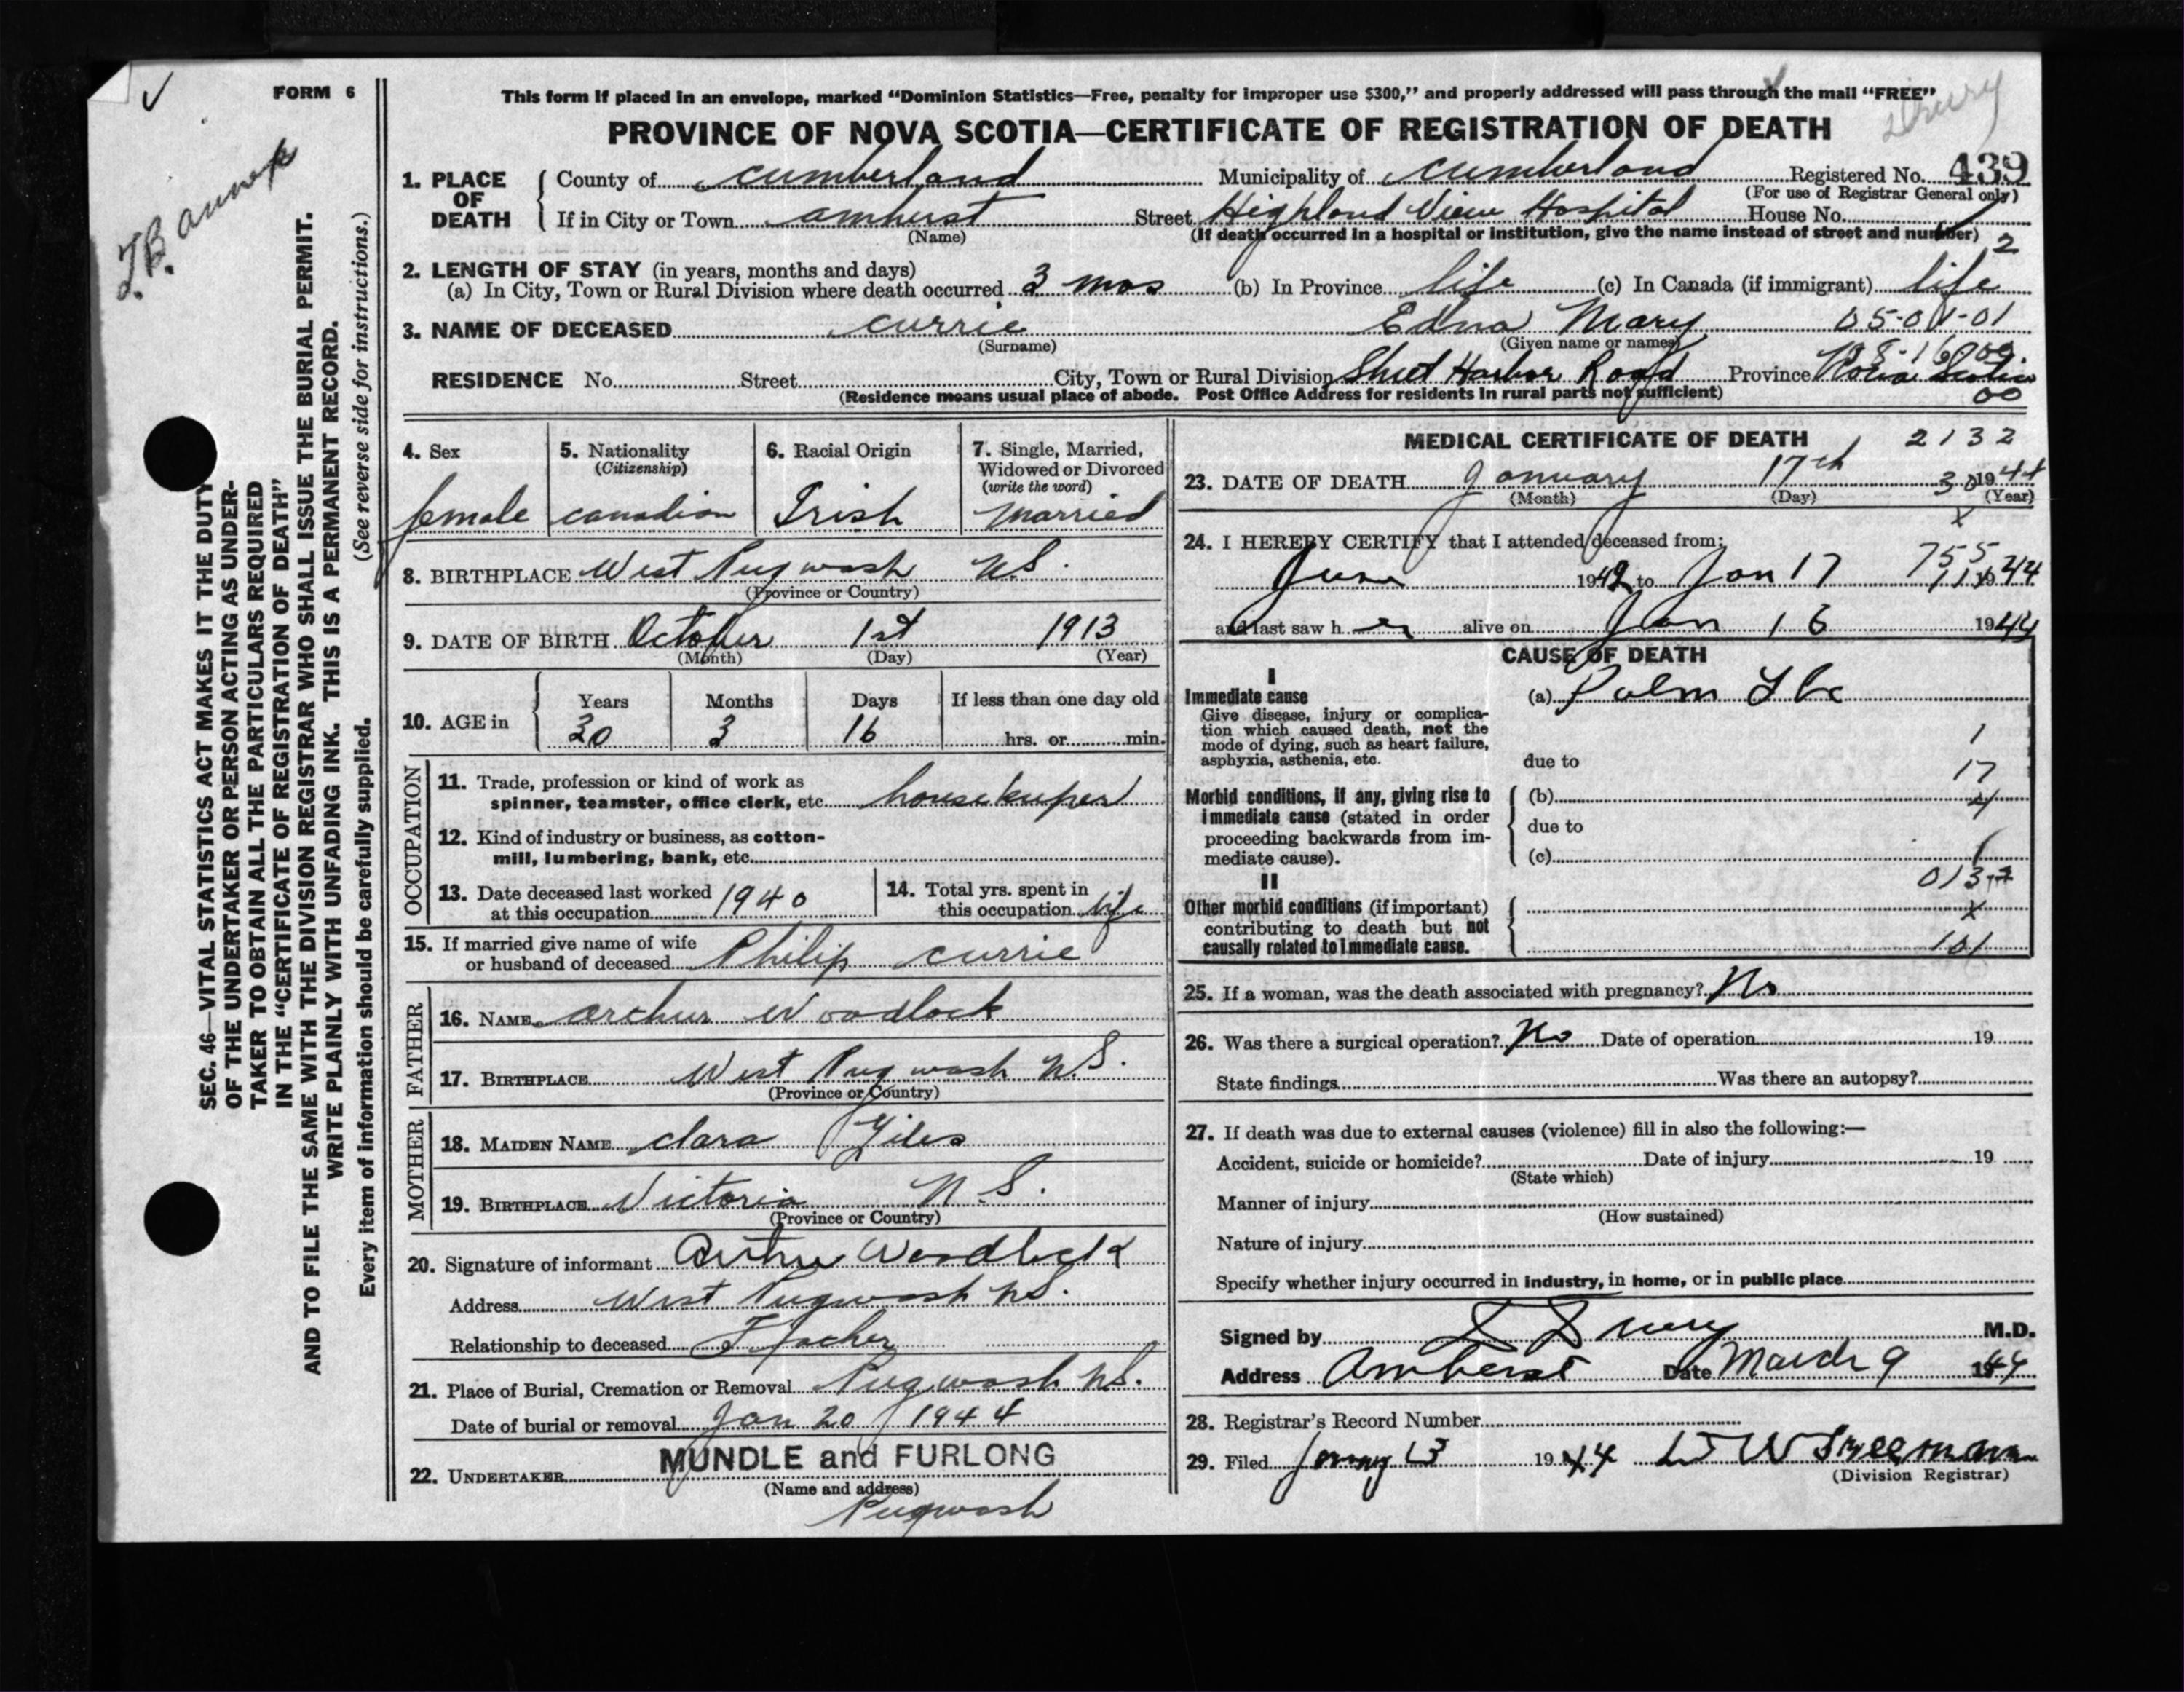 FORM 6
T.B. annex
SEC. 46—VITAL STATISTICS ACT MAKES IT THE DUTY
OF THE UNDERTAKER OR PERSON ACTING AS UNDER-
TAKER TO OBTAIN ALL THE PARTICULARS REQUIRED
IN THE "CERTIFICATE OF REGISTRATION OF DEATH"
AND TO FILE THE SAME WITH THE DIVISION REGISTRAR WHO SHALL ISSUE THE BURIAL PERMIT.
WRITE PLAINLY WITH UNFADING INK. THIS IS A PERMANENT RECORD.
Every item of information should be carefully supplied. (See reverse side for instructions.)
This form if placed in an envelope, marked "Dominion Statistics—Free, penalty for improper use $300," and properly addressed will pass through the mail "FREE"
Drury
PROVINCE OF NOVA SCOTIA—CERTIFICATE OF REGISTRATION OF DEATH
1. PLACE OF DEATH County of Cumberland Municipality of Cumberland Registered No. 439
(For use of Registrar General only)
If in City or Town Amherst Street Highland View Hospital House No.
(Name) (If death occurred in a hospital or institution, give the name instead of street and number)
2
2. LENGTH OF STAY (in years, months and days)
(a) In City, Town or Rural Division where death occurred 3 mos (b) In Province life (c) In Canada (if immigrant) life
3. NAME OF DECEASED Currie Edna Mary 05-01-01
(Surname) (Given name or names)
RESIDENCE No. Street City, Town or Rural Division Sheet Harbor Road Province Nova Scotia
(Residence means usual place of abode. Post Office Address for residents in rural parts not sufficient) 00
4. Sex 5. Nationality 6. Racial Origin 7. Single, Married,
(Citizenship) Widowed or Divorced
(write the word)
female canadian Irish married
8. BIRTHPLACE West Pugwash N.S.
(Province or Country)
9. DATE OF BIRTH October 1st 1913
(Month) (Day) (Year)
10. AGE in Years Months Days If less than one day old
30 3 16 hrs. or min.
OCCUPATION
11. Trade, profession or kind of work as
spinner, teamster, office clerk, etc. housekeeper
12. Kind of industry or business, as cotton-
mill, lumbering, bank, etc.
13. Date deceased last worked at this occupation 1940 14. Total yrs. spent in this occupation life
15. If married give name of wife
or husband of deceased Philip Currie
FATHER
16. NAME Arthur Woodlock
17. BIRTHPLACE West Pugwash N.S.
(Province or Country)
MOTHER
18. MAIDEN NAME Clara Giles
19. BIRTHPLACE Victoria N.S.
(Province or Country)
20. Signature of informant Arthur Woodlock
Address West Pugwash N.S.
Relationship to deceased Father
21. Place of Burial, Cremation or Removal Pugwash N.S.
Date of burial or removal Jan 20 1944
22. UNDERTAKER MUNDLE and FURLONG
(Name and address)
Pugwash
MEDICAL CERTIFICATE OF DEATH 2132
23. DATE OF DEATH January 17th 1944
(Month) (Day) 30 (Year)
24. I HEREBY CERTIFY that I attended deceased from:
June 1942 to Jan 17 1944
755
and last saw h er alive on Jan 16 1944
CAUSE OF DEATH
I
Immediate cause (a) Pulm Tbc
Give disease, injury or complica-
tion which caused death, not the
mode of dying, such as heart failure,
asphyxia, asthenia, etc. due to
1
17
Morbid conditions, if any, giving rise to (b)
immediate cause (stated in order due to
proceeding backwards from im-
mediate cause). (c)
II
Other morbid conditions (if important)
contributing to death but not
causally related to immediate cause.
101
25. If a woman, was the death associated with pregnancy? No
26. Was there a surgical operation? No Date of operation 19
State findings Was there an autopsy?
27. If death was due to external causes (violence) fill in also the following:—
Accident, suicide or homicide? Date of injury 19
(State which)
Manner of injury
(How sustained)
Nature of injury
Specify whether injury occurred in industry, in home, or in public place
Signed by Drury M.D.
Address Amherst Date March 9 1944
28. Registrar's Record Number
29. Filed 1944 W Freeman
(Division Registrar)